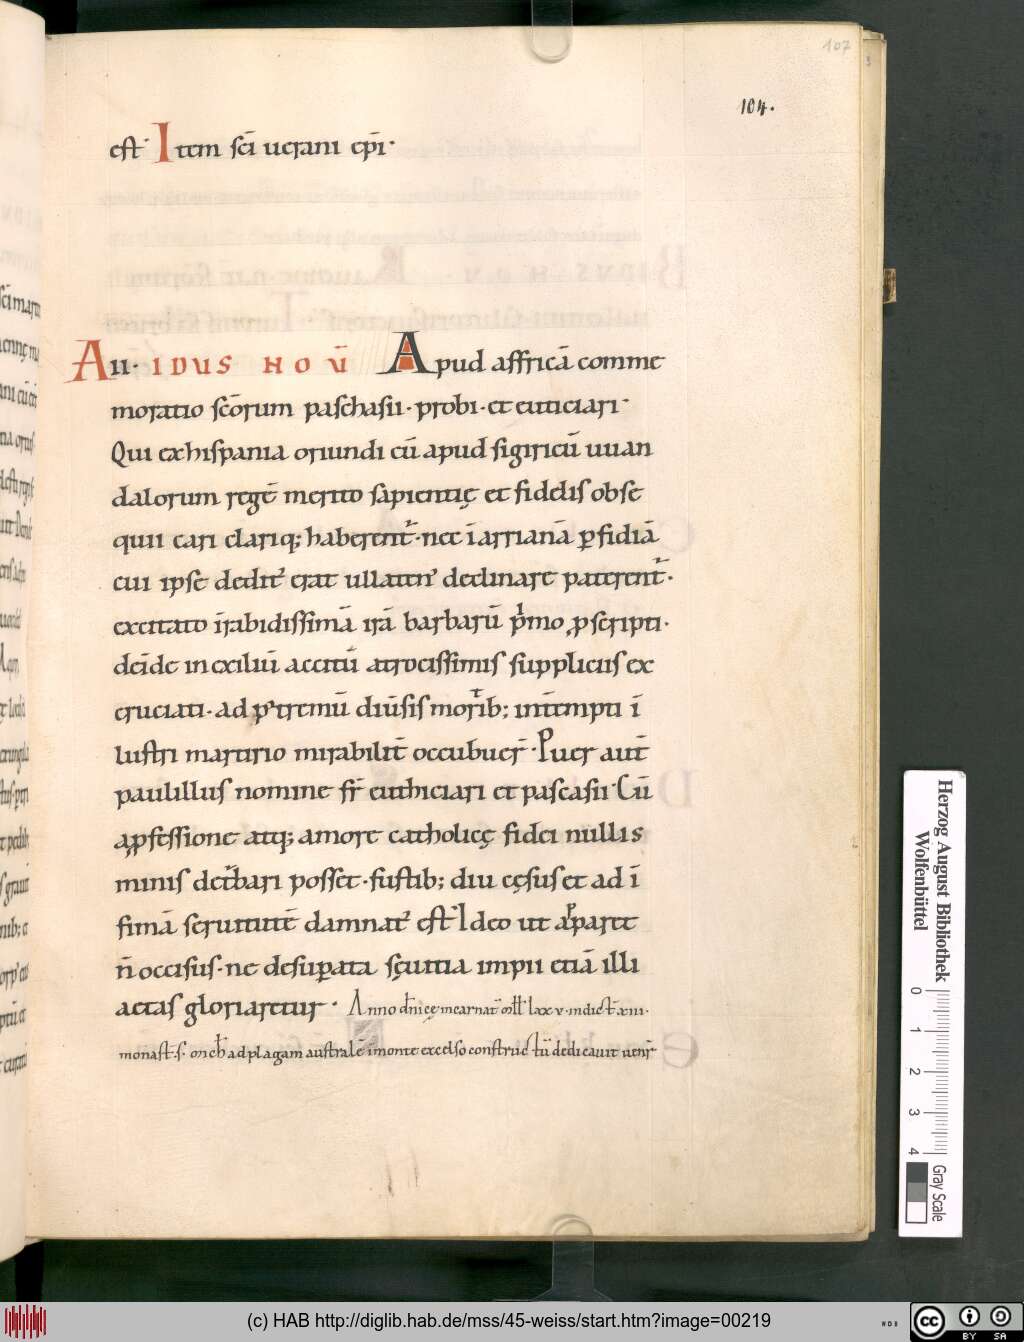 107
104.
est· Item sc̄i uerani ep̄i·
A II· IDUS NOV̄ Apud affricā comme
moratio sc̄orum paschasii· probi· et euticiari·
Qui ex hispania oriundi cū apud sigiricū uuan
dalorum regē merito sapientię et fidelis obse
quii cari clariq; haberent᷑· nec ī arrianā ꝑfidiā
cui ipse dedit᷑ erat ullaten᷒ declinare paterent᷑·
excitato ī rabidissimā irā barbarū pͥmo ꝓscripti·
deīde in exiliū acti atrocissimis suppliciis ex
cruciati· ad postremū diūsis mortib; int̄empti ī
lustri martirio mirabilit̄ occubuer̄· Puer aut̄
paulillus nomine fr̄ euthiciari et pascasii· Cū
a ꝓfessione atq; amore catholicę fidei nullis
minis det᷑bari posset· fustib; diu cęsus et ad ī
fimā seruitutē damnat᷑ est· Ideo ut apparet
n̄ occisus· ne de suꝑata sęuitia impii etiā illi
actas gloriaretur· Anno dn̄icę incarnat̄ mill̄ lxxv· indict̄ xiii·
monast̄· s· ad plagam australē ī monte excelso constructū dedicauit uenr̄
Herzog August Bibliothek
Wolfenbüttel
0 1 2 3 4
Gray Scale
(c) HAB http://diglib.hab.de/mss/45-weiss/start.htm?image=00219
WDB
cc BY SA